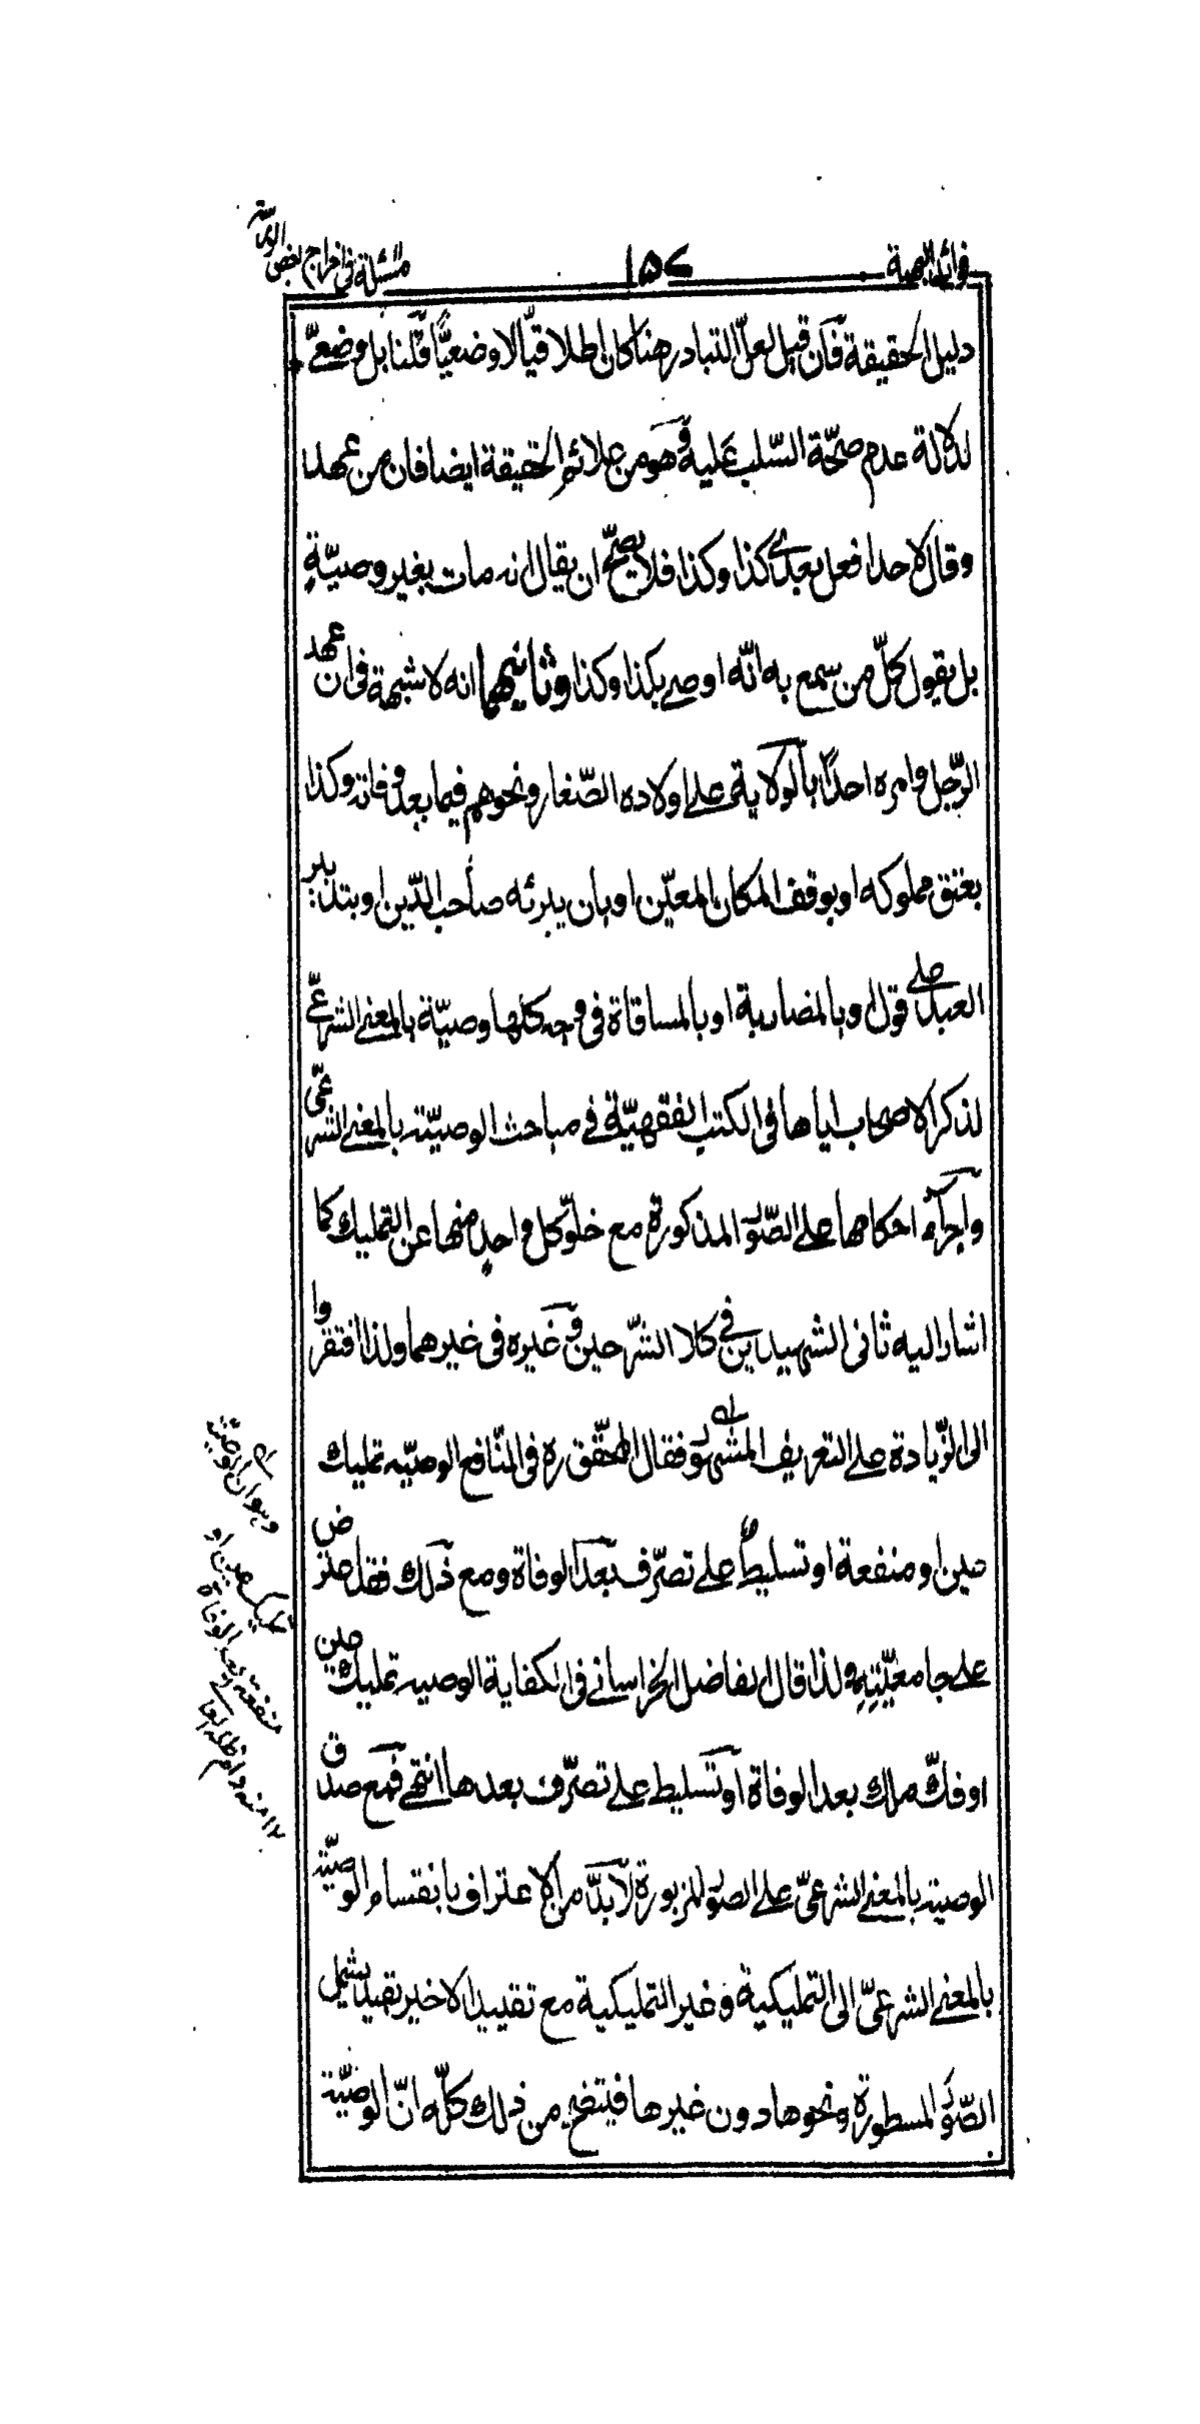 فوائد البهية
١٥٧
مسئلة في اخراج بعض الورثة
دليل الحقيقة فآن قيل لعلّ التبادر هنا كان اطلاقيّا لا وضعيًّا قلنا بل وضعىّ
لدلالة عدم صحّة السّلب عليه وهو من علائم الحقيقة ايضا فان من عهد
وقال لاحد افعل بعدى كذا وكذا فلا يصحّ ان يقال انه مات بغير وصيّةٍ
بل يقول كلّ من سمع به انّه اوصى بكذا وكذا وثانيهما انه لا شبهة فى ان عهد
الرّجل وامره احدًا بالولاية على اولاده الصّغار ونحوهم فيما بعد وفاته وكذا
بعتق مملوكه او بوقف المكان المعيّن او بان يبرئه صاحب الدّين او بتدبير
العبد على قول وبالمضاربة او بالمساقاة فى وجه كلها وصيّة بالمعنى الشرعىّ
لذكر الاصحاب اياها فى الكتب الفقهيّة فى مباحث الوصيّة بالمعنى الشرعىّ
واجراء احكامها على الصّور المذكورة مع خلوّ كل واحدٍ منها عن التمليك كما
اشار اليه ثانى الشهيدين فى كلا الشّرحين وغيره فى غيرهما ولذا افتقروا
الى الزّيادة على التعريف المشهور فقال المحقّق ره فى النّافع الوصيّه تمليك
عين او منفعة او تسليط على تصرّف بعد الوفاة ومع ذلك فقد اعترض
على جامعيّتِهِ ولذا قال الفاضل الخراسانى فى الكفاية الوصيه تمليك عين
او فكّ ملك بعد الوفاة او تسليط على تصرّف بعدها انتهى فمع صدق
الوصية بالمعنى الشرعىّ على الصور المزبورة لا بدّ من الاعتراف بانقسام الوصيّة
بالمعنى الشرعىّ الى التمليكية وغير التمليكية مع تقييد الاخير بقيد يشمل
الصّور المسطورة ونحوها دون غيرها فيتضح من ذلك كلّه انّ الوصيّة
وهو ان الوصيّة
تمليك عين او
منفعة بعد الوفاة
١٢ منه دام ظله العالى